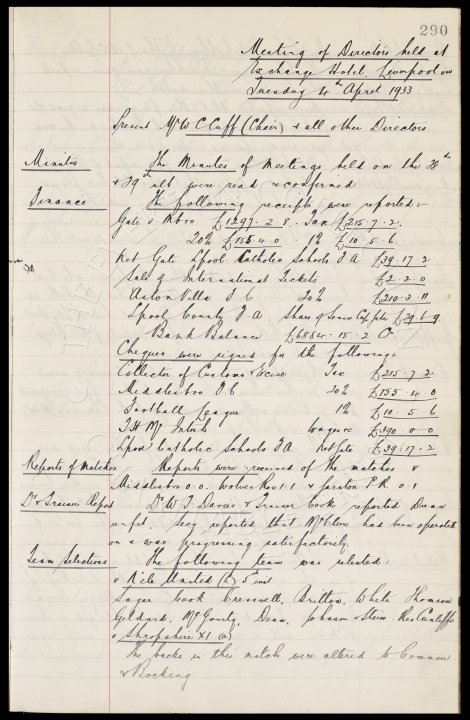 290
Meeting of Directors held at
Exchange Hotel, Liverpool on
Tuesday 4th April 1933
Present Mr W C Cuff (Chair) & all other Directors
Minutes The Minutes of Meetings held on the 28th
& 29th ult were read & confirmed
Finance The following receipts were reported:-
Gate v Mboro £1297.2.8. Tax £215.7.2.
20% £155.4.0 1% £10.5.6.
Ret Gate Lpool Catholic Schools F A £39.17.2
Sale of International Tickets £2.2.0
Aston Villa F C 20% £210.3.11
Lpool County F A Share of Senior Cup £29.6.9
Bank Balance £6884.15.2 O
Cheques were signed for the following:
Collector of Customs & Excise Tax £215.7.2
Middlesbro F.C 20% £155.4.0
Football League 1% £10.5.6
T H McIntosh wages £390.0.0
Lpool Catholic Schools FA Ret Gate £39.17.2
Reports of Matches Reports were received of the matches v
Middlesbro 0.0. Wolves Res 1.1 & P.R. 0.1
Dr & Trainers Report Dr W J Davies & Trainer Cook reported Dean
unfit. Secy reported that McClure had been operated
on & was progressing satisfactorily.
Team Selections The following team was selected:
v Newcastle United (h)
Sagar Cook Cresswell, Britton, White Thomson
Geldard, McGourty, Dean, Johnson & Stein. Res Cunliffe
v Shropshire XI (a)
The backs in this match were altered to Common
& Bocking